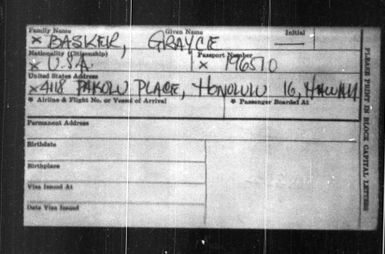 Family Name Given Name Initial
x BASKER, GRAYCE
Nationality (Citizenship) Passport Number
x U.S.A. x 196510
United States Address
x 4118 PAKOLU PLACE, HONOLULU 16, HAWAII
* Airline & Flight No. or Vessel of Arrival * Passenger Boarded At
Permanent Address
Birthdate
Birthplace
Visa Issued At
Date Visa Issued
PLEASE PRINT IN BLOCK CAPITAL LETTERS